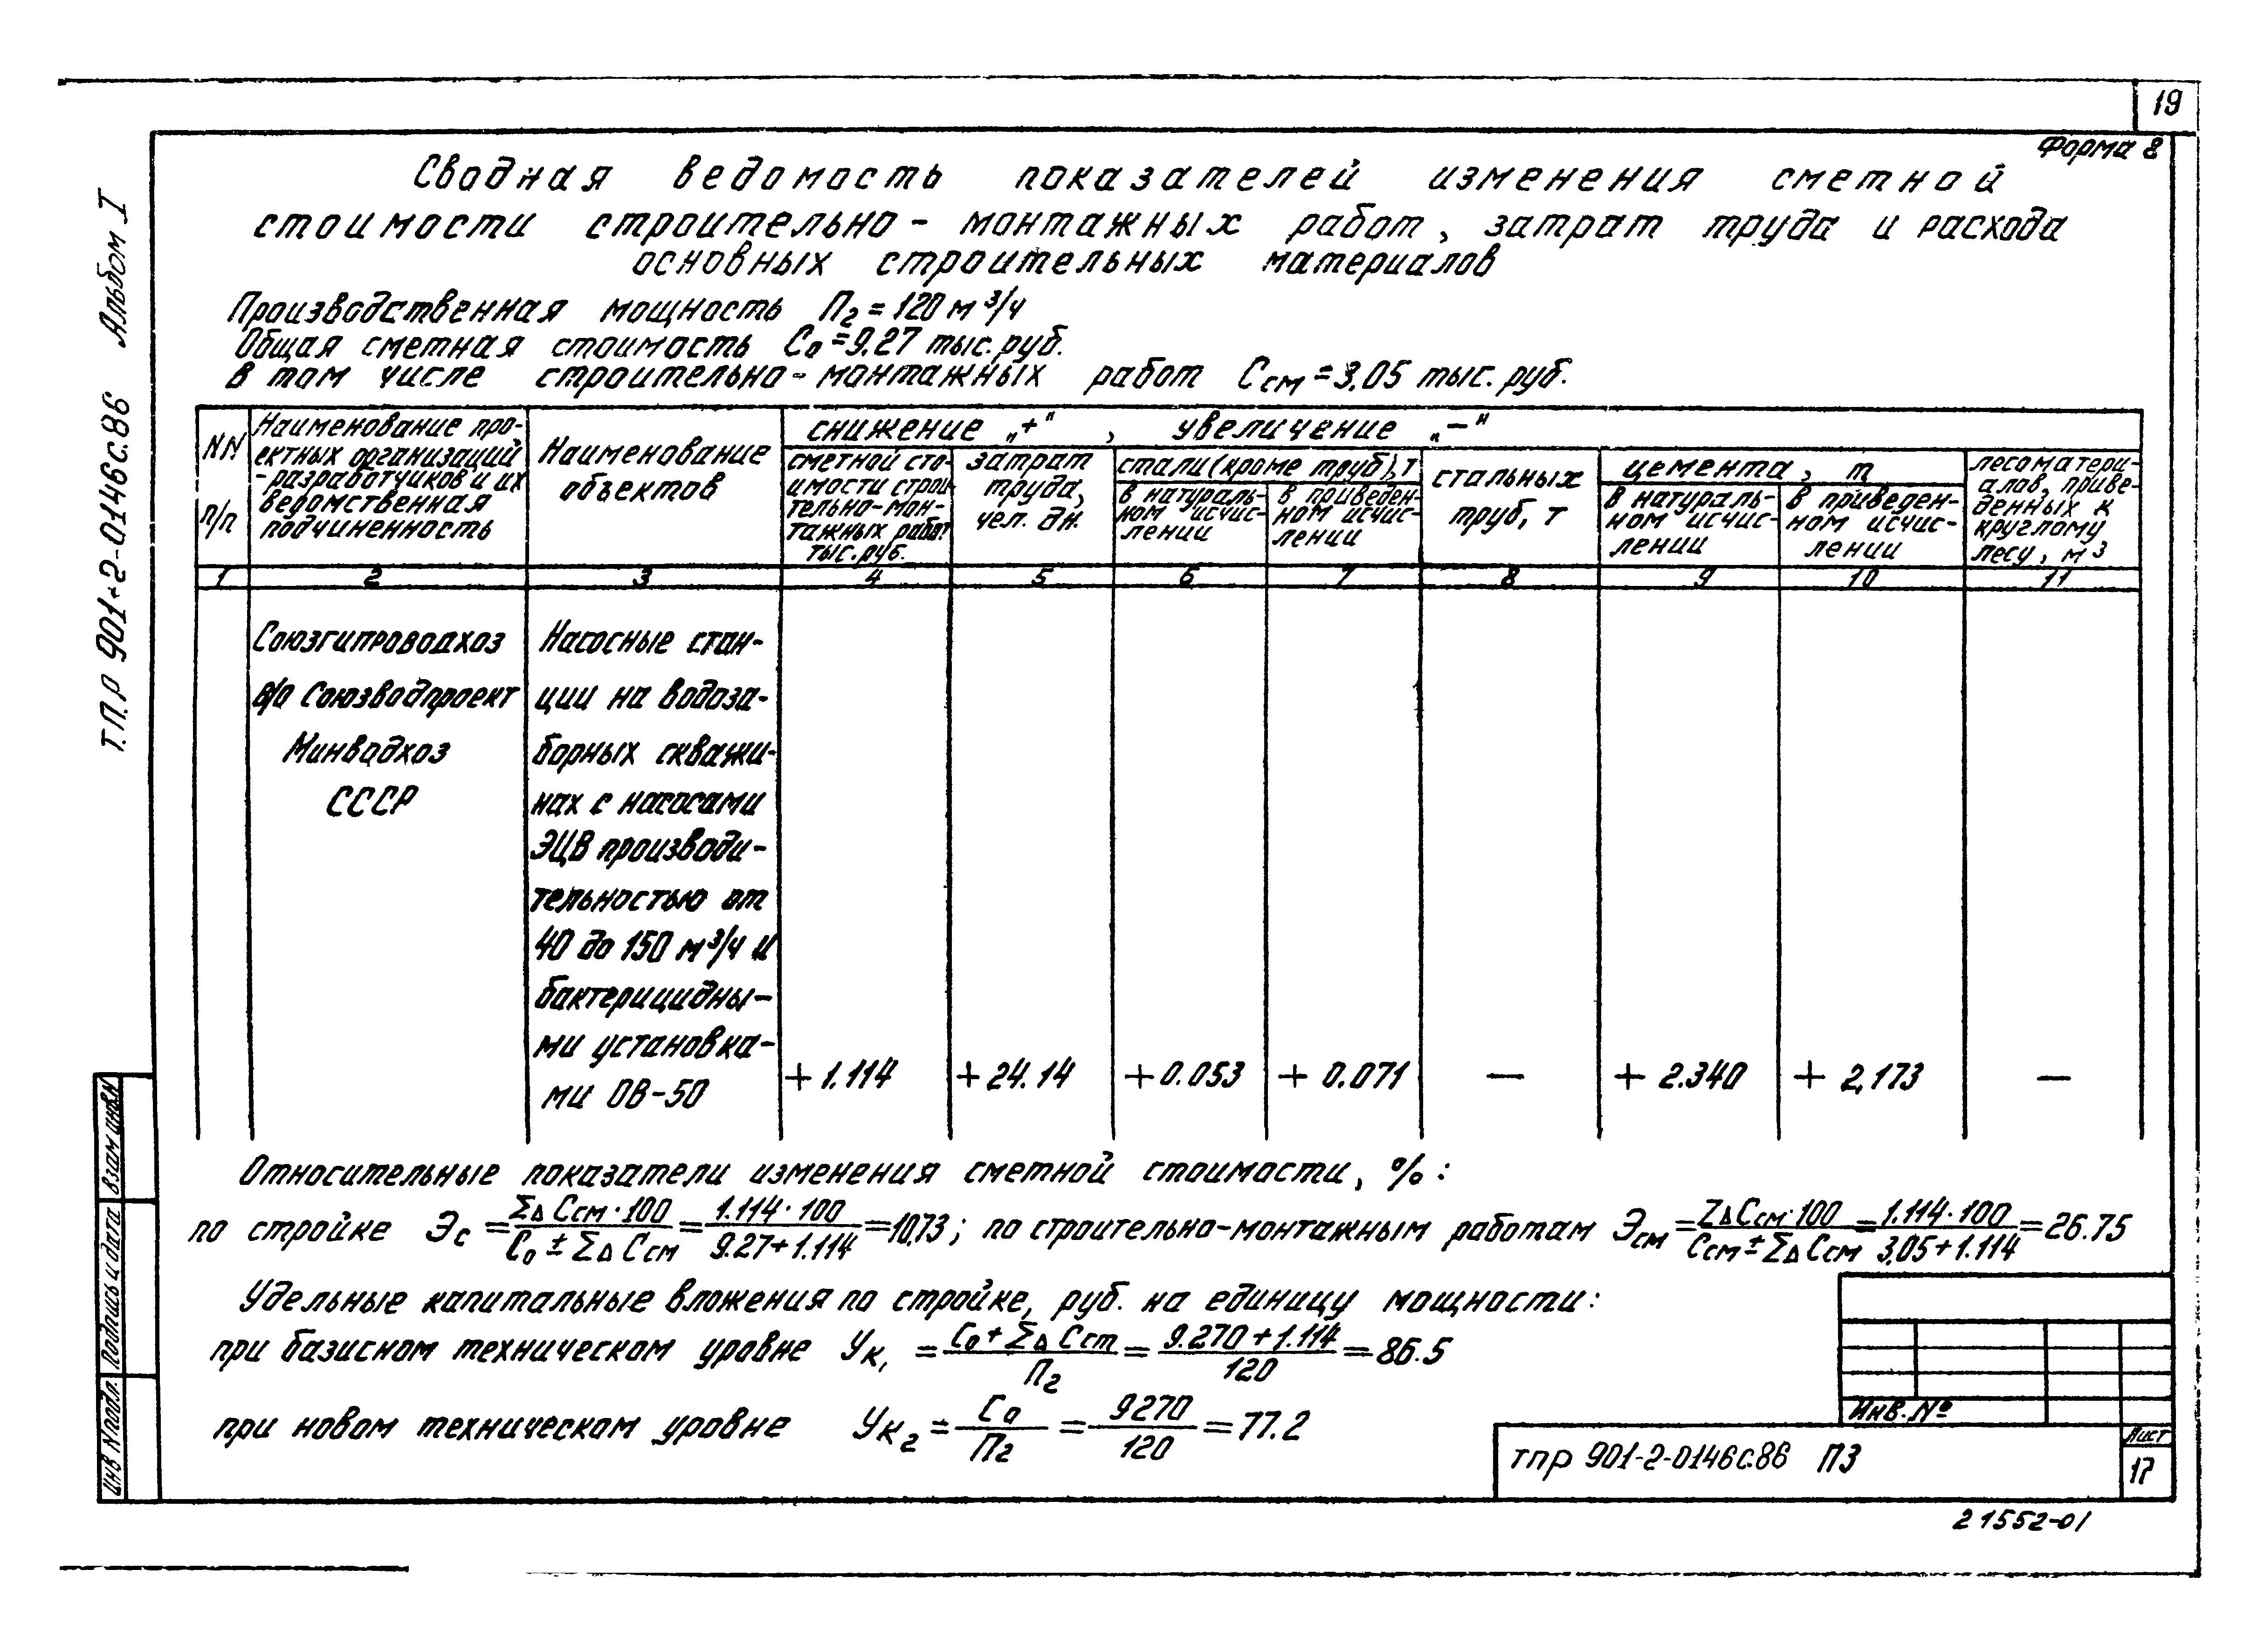 19
Форма 8
Сводная ведомость показателей изменения сметной
стоимости строительно-монтажных работ, затрат труда и расхода
основных строительных материалов
Производственная мощность Пг = 120 м³/ч
Общая сметная стоимость Со = 9.27 тыс. руб.
в том числе строительно-монтажных работ Ссм = 3.05 тыс. руб.
NN п/п
Наименование про-
ектных организаций
-разработчиков и их
ведомственная
подчиненность
Наименование
объектов
снижение „+“, увеличение „—“
сметной сто-
имости строи
тельно-мон-
тажных работ
тыс. руб.
затрат
труда,
чел. дн.
стали (кроме труб), т
в натураль-
ном исчис-
лении
в приведен-
ном исчис-
лении
стальных
труб, т
цемента, т
в натураль-
ном исчис-
лении
в приведен-
ном исчис-
лении
лесоматери-
алов, приве-
денных к
круглому
лесу, м³
1 2 3 4 5 6 7 8 9 10 11
Союзгипроводхоз
в/о Союзводпроект
Минводхоз
СССР
Насосные стан-
ции на водоза-
борных скважи-
нах с насосами
ЭЦВ производи-
тельностью от
40 до 150 м³/ч и
бактерицидны-
ми установка-
ми ОВ-50
+ 1.114 + 24.14 + 0.053 + 0.071 — + 2.340 + 2,173 —
Относительные показатели изменения сметной стоимости, %:
по стройке Эс = ΣΔ Ссм · 100 / Со ± ΣΔ Ссм = 1.114 · 100 / 9.27 + 1.114 = 10,73; по строительно-монтажным работам Эсм = ΣΔ Ссм · 100 / Ссм ± ΣΔ Ссм = 1.114 · 100 / 3,05 + 1.114 = 26.75
Удельные капитальные вложения по стройке, руб. на единицу мощности:
при базисном техническом уровне Ук₁ = Со + ΣΔ Сст / Пг = 9.270 + 1.114 / 120 = 86.5
при новом техническом уровне Ук₂ = Со / Пг = 9270 / 120 = 77.2
Инв. №
тпр 901-2-0146с.86 ПЗ
Лист
17
21552-01
Т.П.Р 901-2-0146с.86 Альбом I
Взам инв.N
Подпись и дата
Инв N подл.